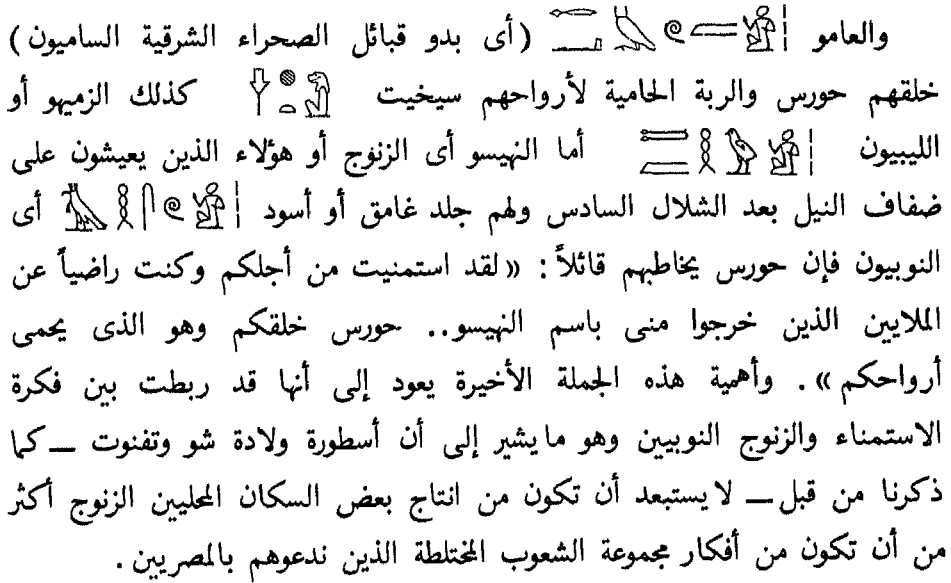 والعامو (أى بدو قبائل الصحراء الشرقية الساميون)
خلقهم حورس والربة الحامية لأرواحهم سيخيت كذلك الزميهو أو
الليبيون أما النهيسو أى الزنوج أو هؤلاء الذين يعيشون على
ضفاف النيل بعد الشلال السادس ولهم جلد غامق أو أسود أى
النوبيون فإن حورس يخاطبهم قائلاً : «لقد استمنيت من أجلكم وكنت راضياً عن
الملايين الذين خرجوا منى باسم النهيسو.. حورس خلقكم وهو الذى يحمى
أرواحكم» . وأهمية هذه الجملة الأخيرة يعود إلى أنها قد ربطت بين فكرة
الاستمناء والزنوج النوبيين وهو ما يشير إلى أن أسطورة ولادة شو وتفنوت ــ كما
ذكرنا من قبل ــ لا يستبعد أن تكون من انتاج بعض السكان المحليين الزنوج أكثر
من أن تكون من أفكار مجموعة الشعوب المختلطة الذين ندعوهم بالمصريين .